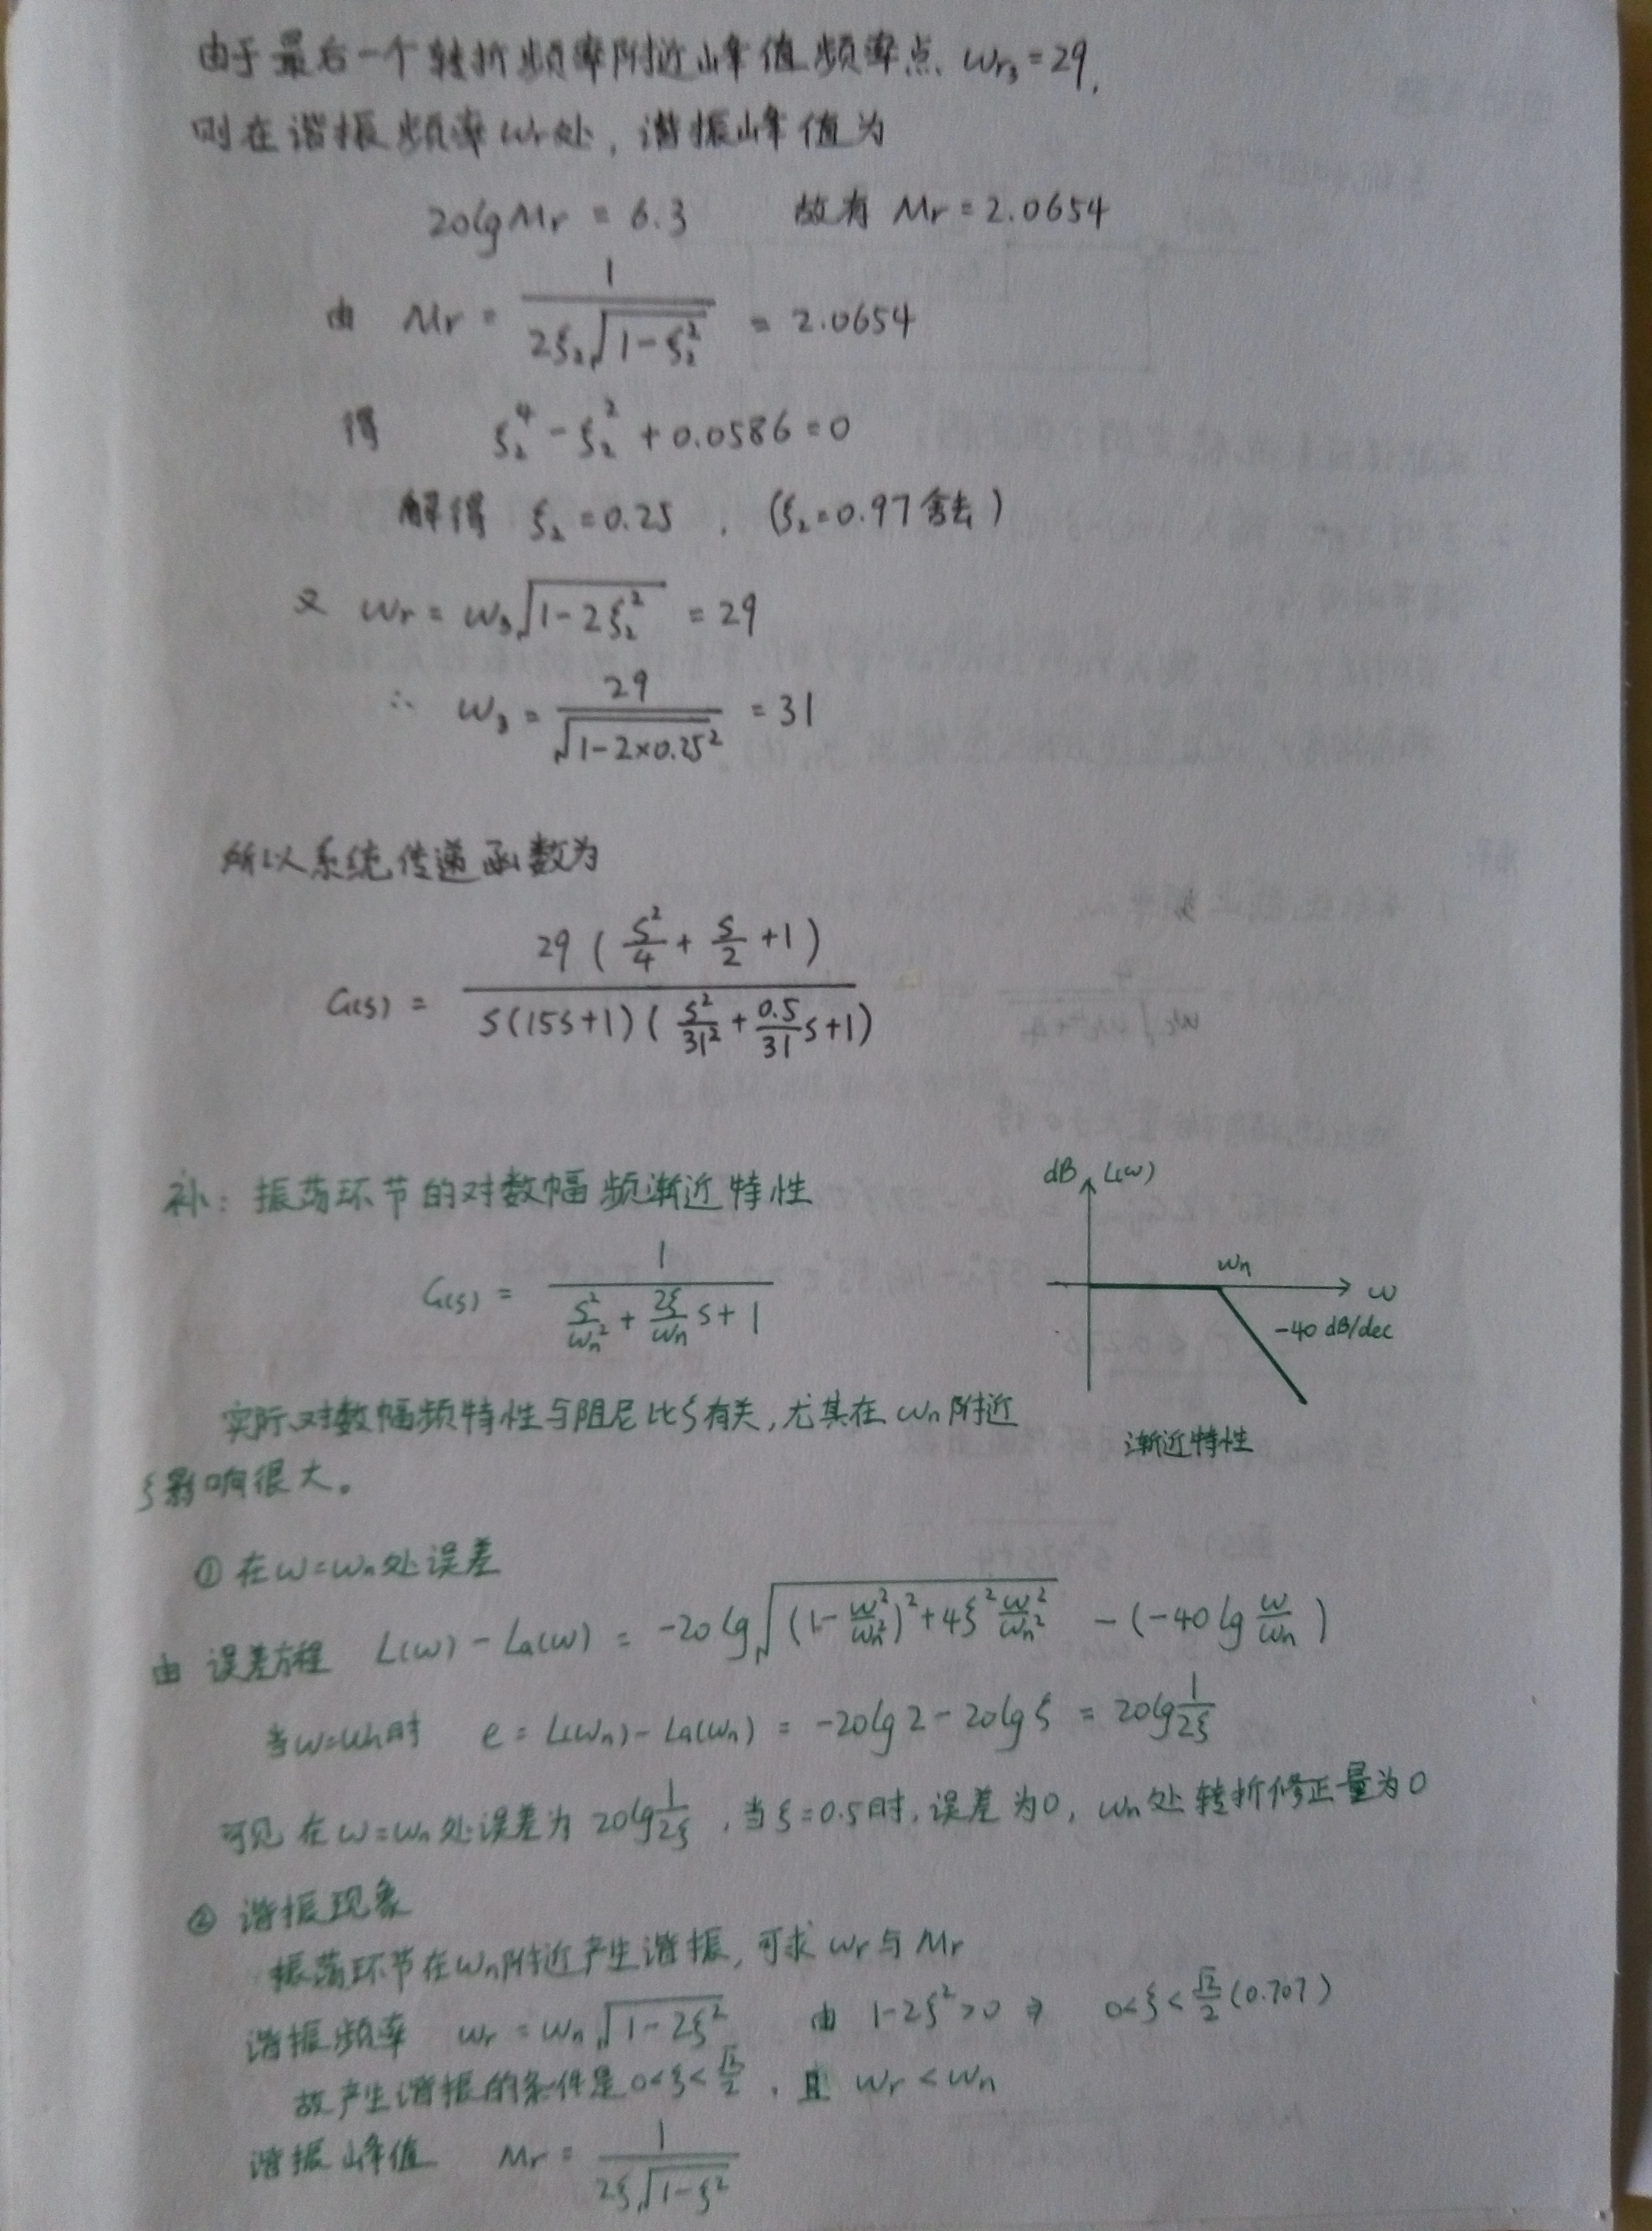 由于最后一个转折频率附近峰值频率点 ωr₃=29,
则在谐振频率ωr处，谐振峰值为
20lgMr = 6.3 故有 Mr = 2.0654
由 Mr = 1/(2ξ₂√(1-ξ₂²)) = 2.0654
得 ξ₂⁴ - ξ₂² + 0.0586 = 0
解得 ξ₂ = 0.25 , (ξ₂=0.97舍去)
又 ωr = ω₃√(1-2ξ₂²) = 29
∴ ω₃ = 29/√(1-2×0.25²) = 31
所以系统传递函数为
G(s) = 29(s²/4 + s/2 + 1) / s(15s+1)(s²/31² + 0.5/31 s + 1)
补：振荡环节的对数幅频渐近特性
G(s) = 1/(s²/ωn² + 2ξ/ωn s + 1)
dB L(ω)
ωn
ω
-40 dB/dec
渐近特性
实际对数幅频特性与阻尼比ξ有关,尤其在ωn附近
ξ影响很大。
① 在ω=ωn处误差
由 误差方程 L(ω) - La(ω) = -20lg√((1-ω²/ωn²)²+4ξ²ω²/ωn²) - (-40lg ω/ωn)
当ω=ωn时 e = L(ωn) - La(ωn) = -20lg2 - 20lgξ = 20lg 1/2ξ
可见 在ω=ωn处误差为 20lg 1/2ξ , 当ξ=0.5时, 误差为0, ωn处转折修正量为0
② 谐振现象
振荡环节在ωn附近产生谐振, 可求ωr与Mr
谐振频率 ωr = ωn√(1-2ξ²) 由 1-2ξ²>0 ⇒ 0<ξ<√2/2 (0.707)
故产生谐振的条件是0<ξ<√2/2 , 且 ωr<ωn
谐振峰值 Mr = 1/(2ξ√(1-ξ²))